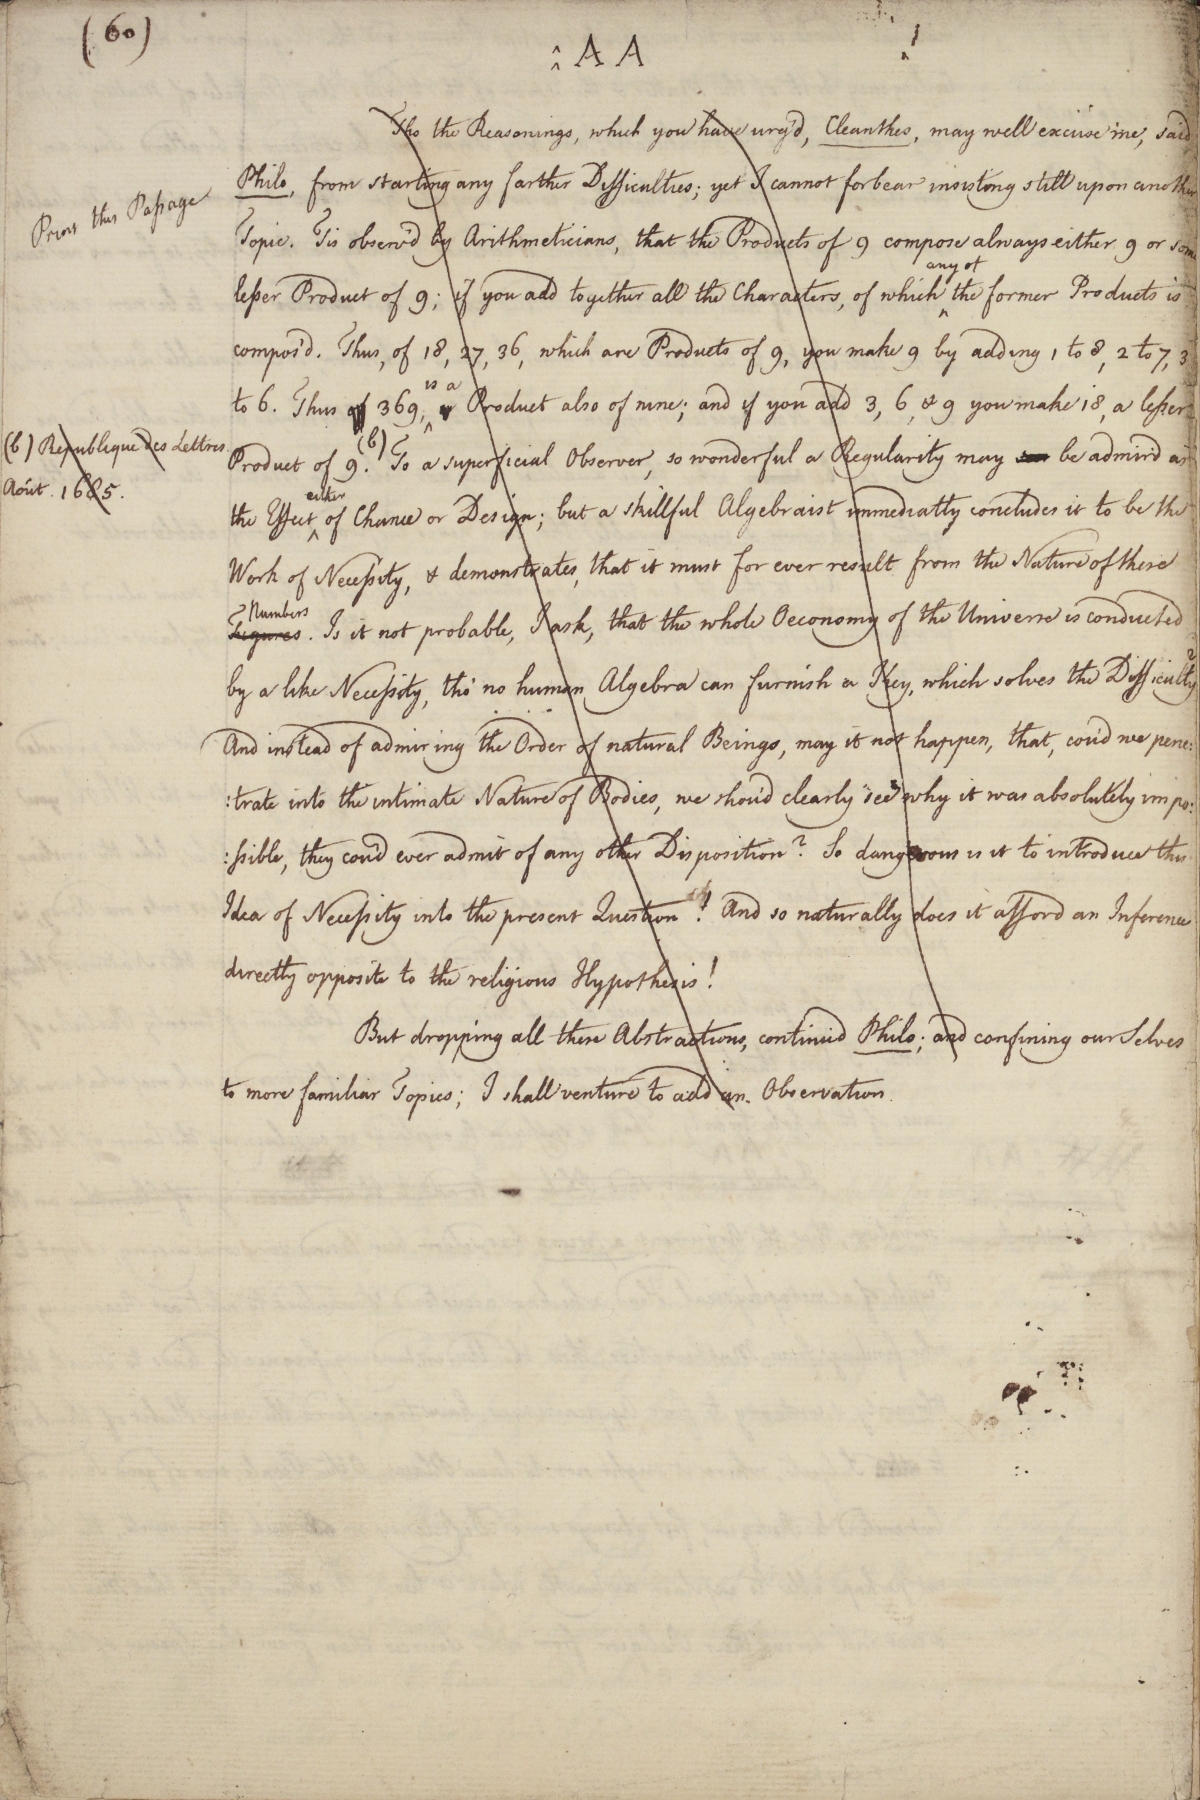 (60)
AA
Tho the Reasonings, which you have urg'd, Cleanthes, may well excuse me, said
Philo, from starting any farther Difficulties; yet I cannot forbear insisting still upon another
Print this Passage
Topic. Tis observ'd by Arithmeticians, that the Products of 9 compose always either 9 or some
lesser Product of 9; if you add together all the Characters, of which any of the former Products is
compos'd. Thus, of 18, 27, 36, which are Products of 9, you make 9 by adding 1 to 8, 2 to 7, 3
to 6. Thus 369, is a Product also of nine; and if you add 3, 6, & 9 you make 18, a lesser
(b) Republique des Lettres
Aôut. 1685.
Product of 9.(b) To a superficial Observer, so wonderful a Regularity may be admir'd as
the Effect either of Chance or Design; but a skillful Algebraist immediatly concludes it to be the
Work of Necessity, & demonstrates, that it must for ever result from the Nature of these
Figures Numbers. Is it not probable, I ask, that the whole Oeconomy of the Universe is conducted
by a like Necessity, tho' no human Algebra can furnish a Key, which solves the Difficulty?
And instead of admiring the Order of natural Beings, may it not happen, that, cou'd we pene:
:trate into the intimate Nature of Bodies, we shou'd clearly see why it was absolutely impo:
:ssible, they cou'd ever admit of any other Disposition? So dangerous is it to introduce this
Idea of Necessity into the present Question! And so naturally does it afford an Inference
directly opposite to the religious Hypothesis!
But dropping all these Abstractions, continu'd Philo; and confining ourselves
to more familiar Topics; I shall venture to add an Observation